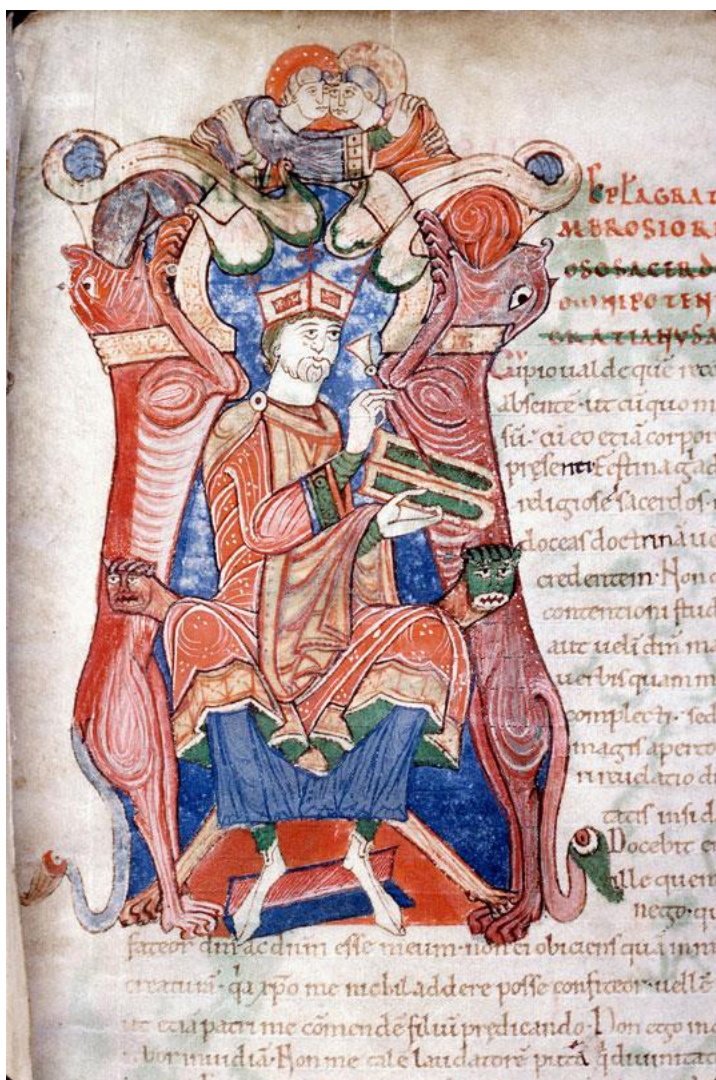 EPLA GRAT
MBROSIO RE
OSO SACERD
OMNIPOTEN
GRATIANVS A
Cupio ualde quē reco
absentē· ut cū quo m
sū· cū eo etiā corpor
presenti· Festina g̃ ad
religiose sacerdos·
doceas doctrinā ue
credentem· Non
contentioni stud
aut uelī dm̄ ma
uerbis quam m
complecti· sed
magis aperto
n reuelatio di
tatis insid
Docebit en
ille quem
nego· qu
fateor dn̄m ac dm̄ esse meum· non ei obiciens quā in m
creaturā· q̇a xp̄o me nichil addere posse confiteor· uellē
ut etiā patri me cōmendē filiū predicando· Non ego in
bor inuidiā· Non me tale laudatorē putā q̇ diuinitat